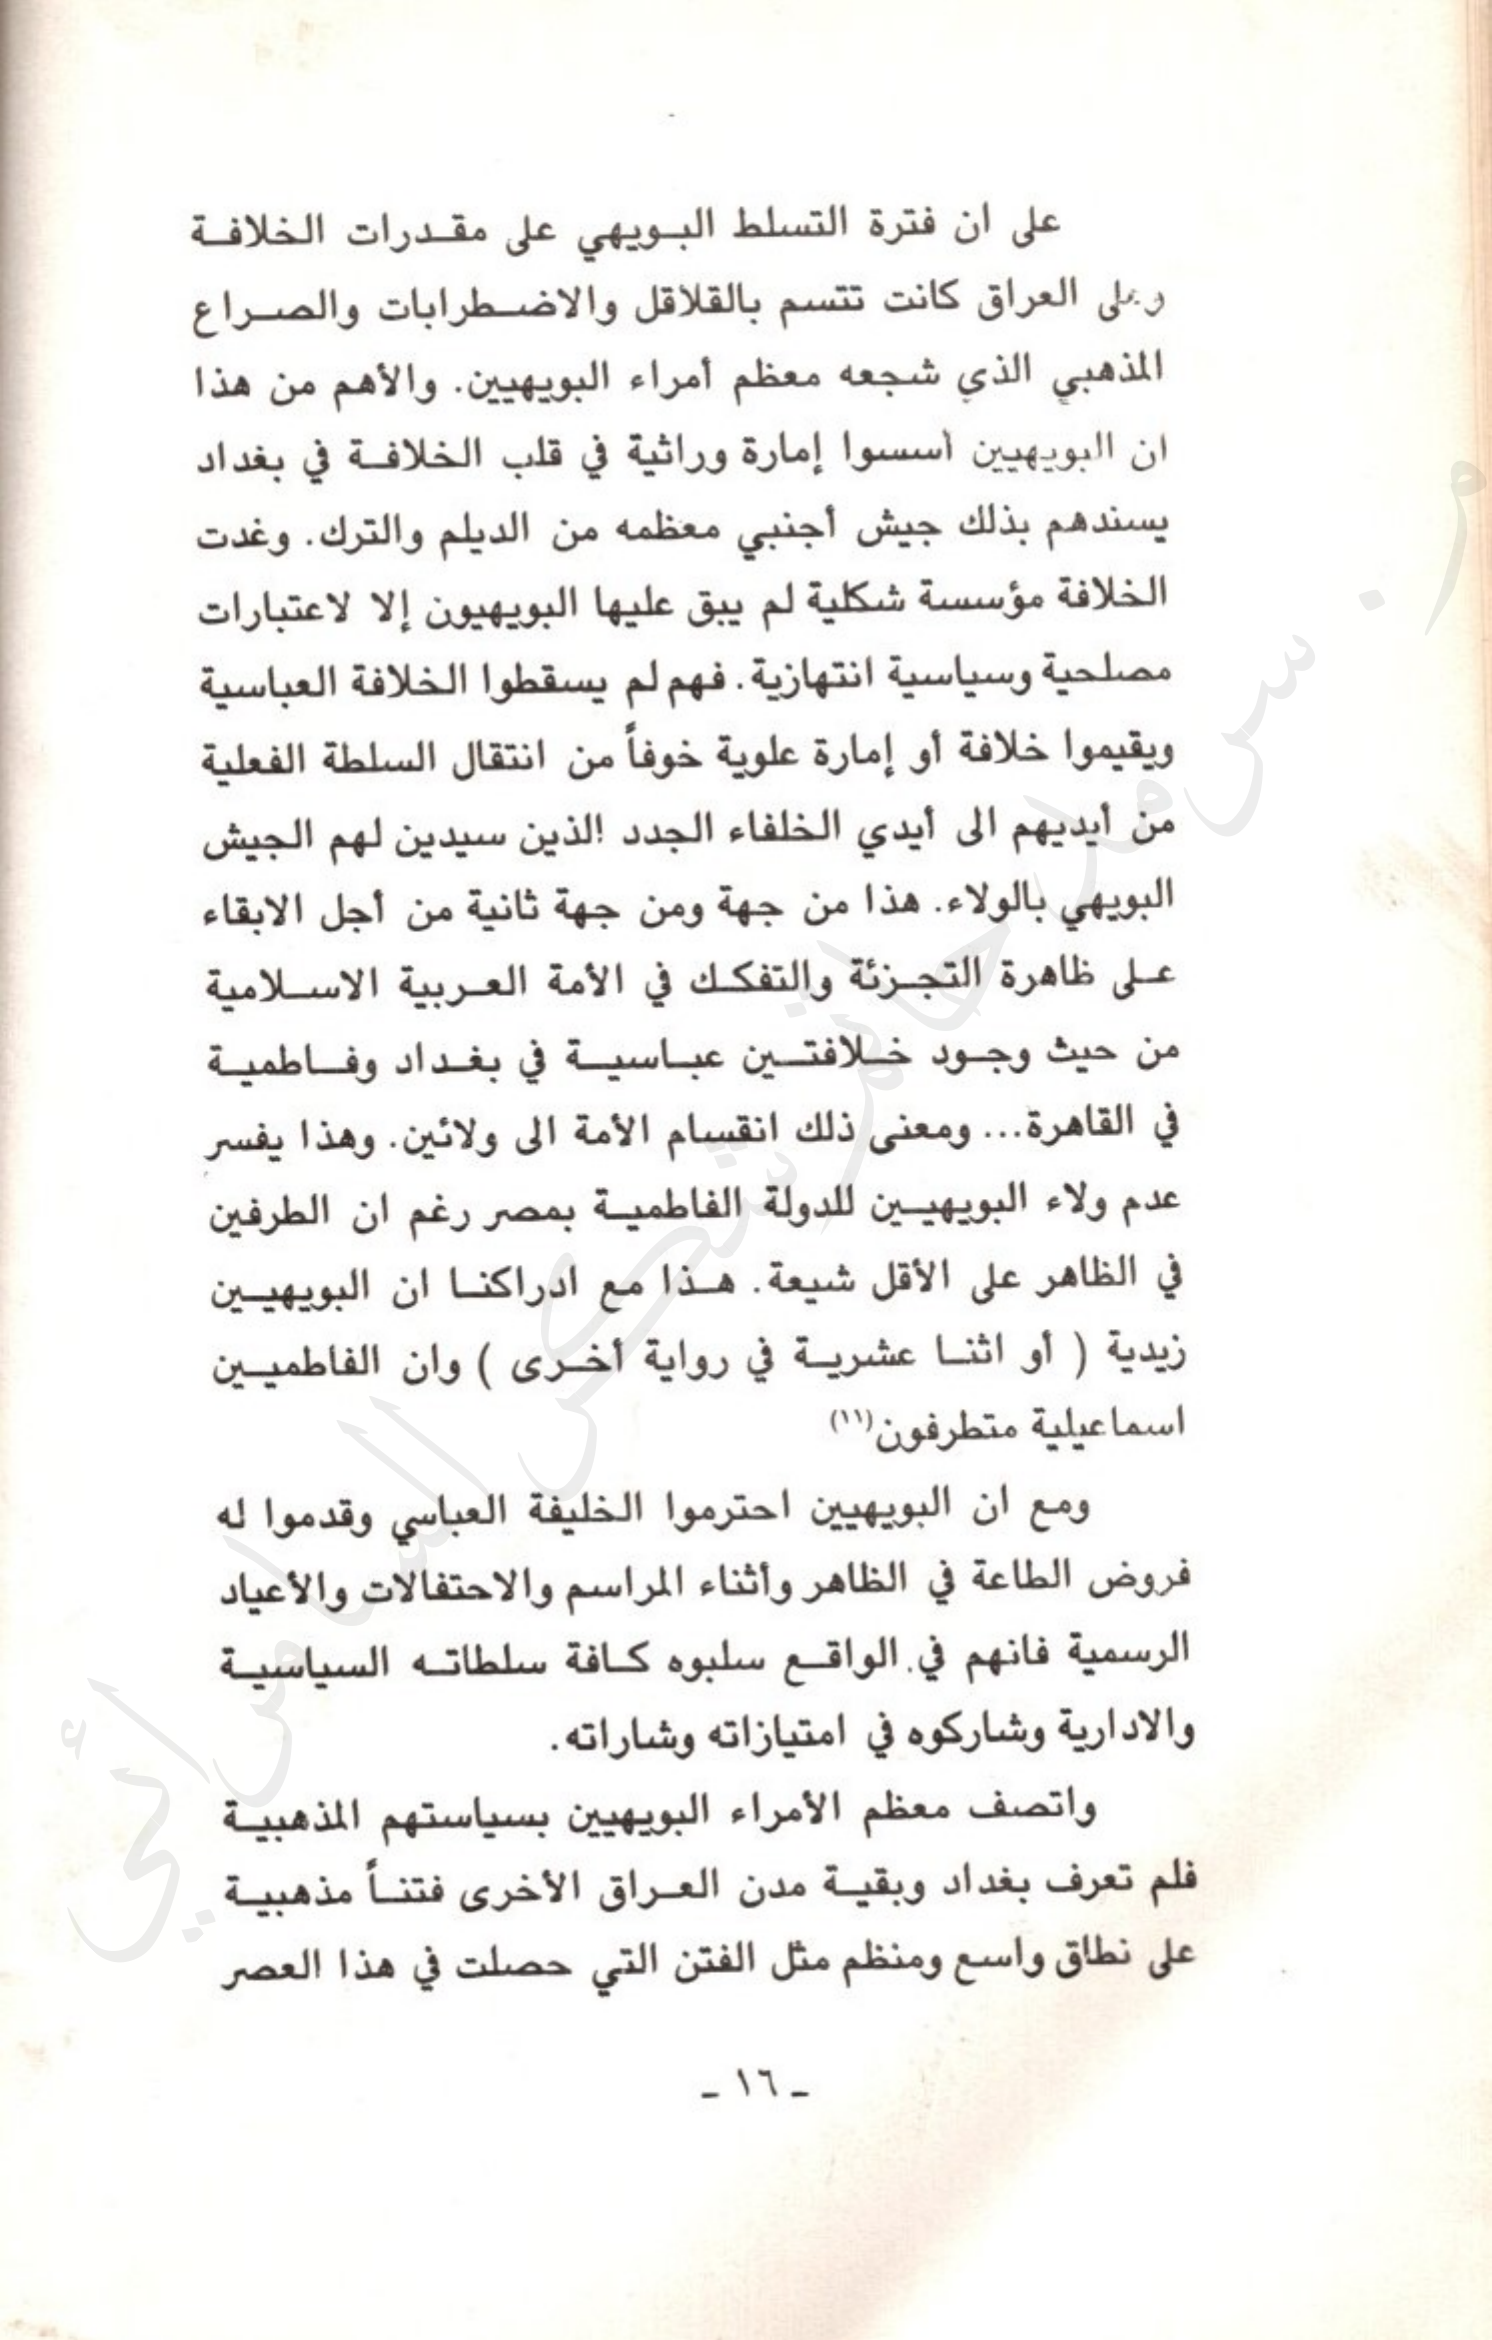 على ان فترة التسلط البويهي على مقدرات الخلافة
وعلى العراق كانت تتسم بالقلاقل والاضطرابات والصراع
المذهبي الذي شجعه معظم أمراء البويهيين. والأهم من هذا
ان البويهيين أسسوا إمارة وراثية في قلب الخلافة في بغداد
يسندهم بذلك جيش أجنبي معظمه من الديلم والترك. وغدت
الخلافة مؤسسة شكلية لم يبق عليها البويهيون إلا لاعتبارات
مصلحية وسياسية انتهازية. فهم لم يسقطوا الخلافة العباسية
ويقيموا خلافة أو إمارة علوية خوفاً من انتقال السلطة الفعلية
من أيديهم الى أيدي الخلفاء الجدد الذين سيدين لهم الجيش
البويهي بالولاء. هذا من جهة ومن جهة ثانية من أجل الابقاء
على ظاهرة التجزئة والتفكك في الأمة العربية الاسلامية
من حيث وجود خلافتين عباسية في بغداد وفاطمية
في القاهرة... ومعنى ذلك انقسام الأمة الى ولائين. وهذا يفسر
عدم ولاء البويهيين للدولة الفاطمية بمصر رغم ان الطرفين
في الظاهر على الأقل شيعة. هذا مع ادراكنا ان البويهيين
زيدية ( أو اثنا عشرية في رواية أخرى ) وان الفاطميين
اسماعيلية متطرفون(١١)
ومع ان البويهيين احترموا الخليفة العباسي وقدموا له
فروض الطاعة في الظاهر وأثناء المراسم والاحتفالات والأعياد
الرسمية فانهم في الواقع سلبوه كافة سلطاته السياسية
والادارية وشاركوه في امتيازاته وشاراته.
واتصف معظم الأمراء البويهيين بسياستهم المذهبية
فلم تعرف بغداد وبقية مدن العراق الأخرى فتناً مذهبية
على نطاق واسع ومنظم مثل الفتن التي حصلت في هذا العصر
ـ ١٦ ـ
م. سرمد حاتم شكر السامرائي